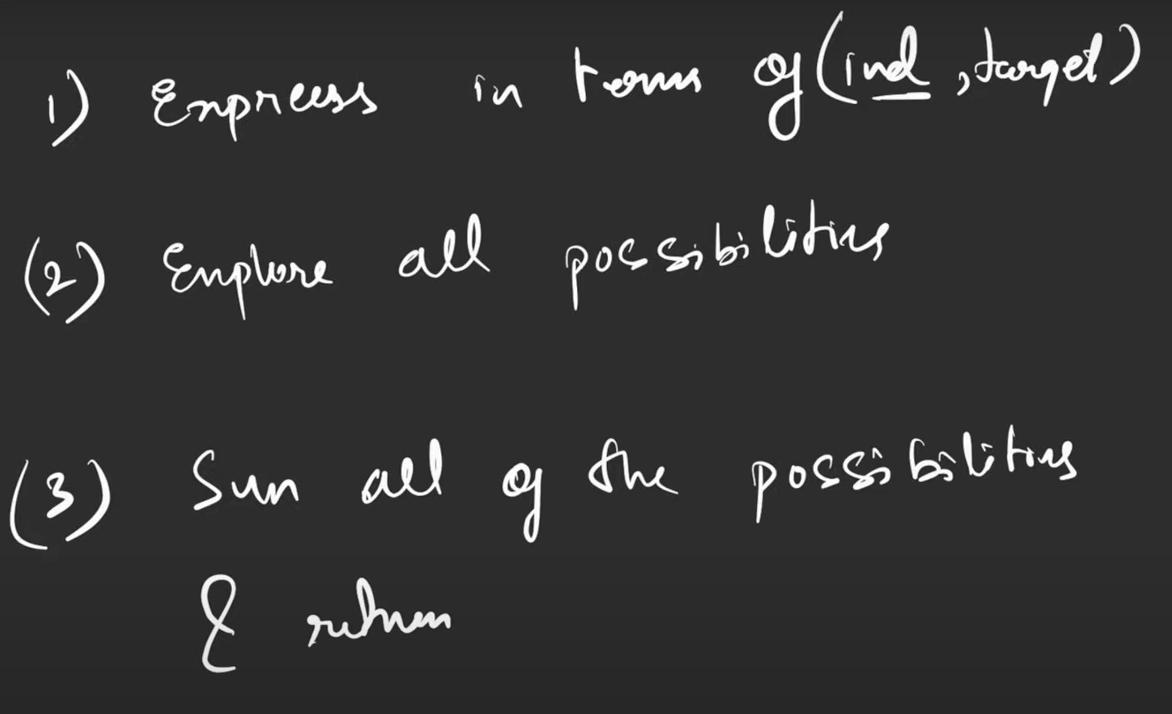 1) Express in terms of (ind, target)
(2) Explore all possibilities
(3) Sum all of the possibilities
& return